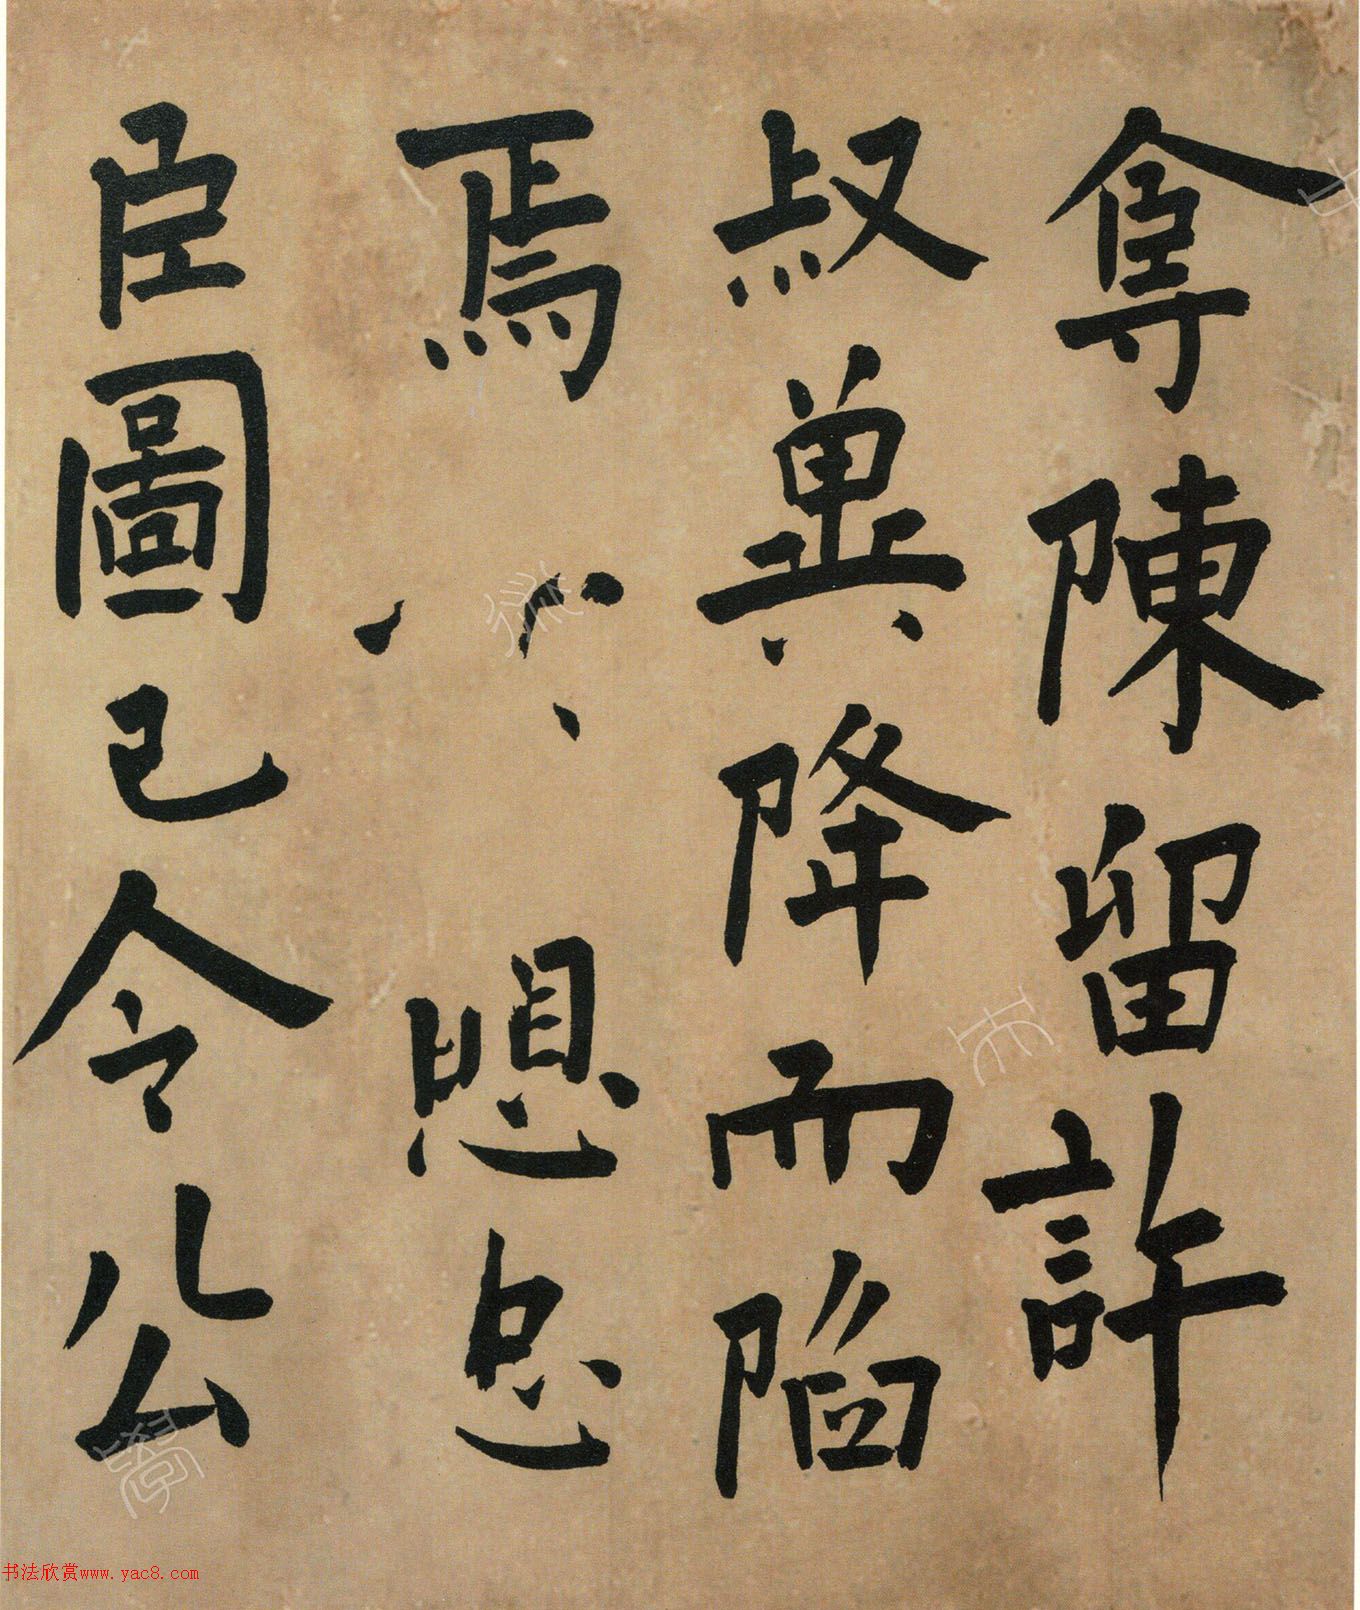 奪陳留許
叔冀降而陷
焉愳忠
臣圖已令公
书法欣赏www.yac8.com